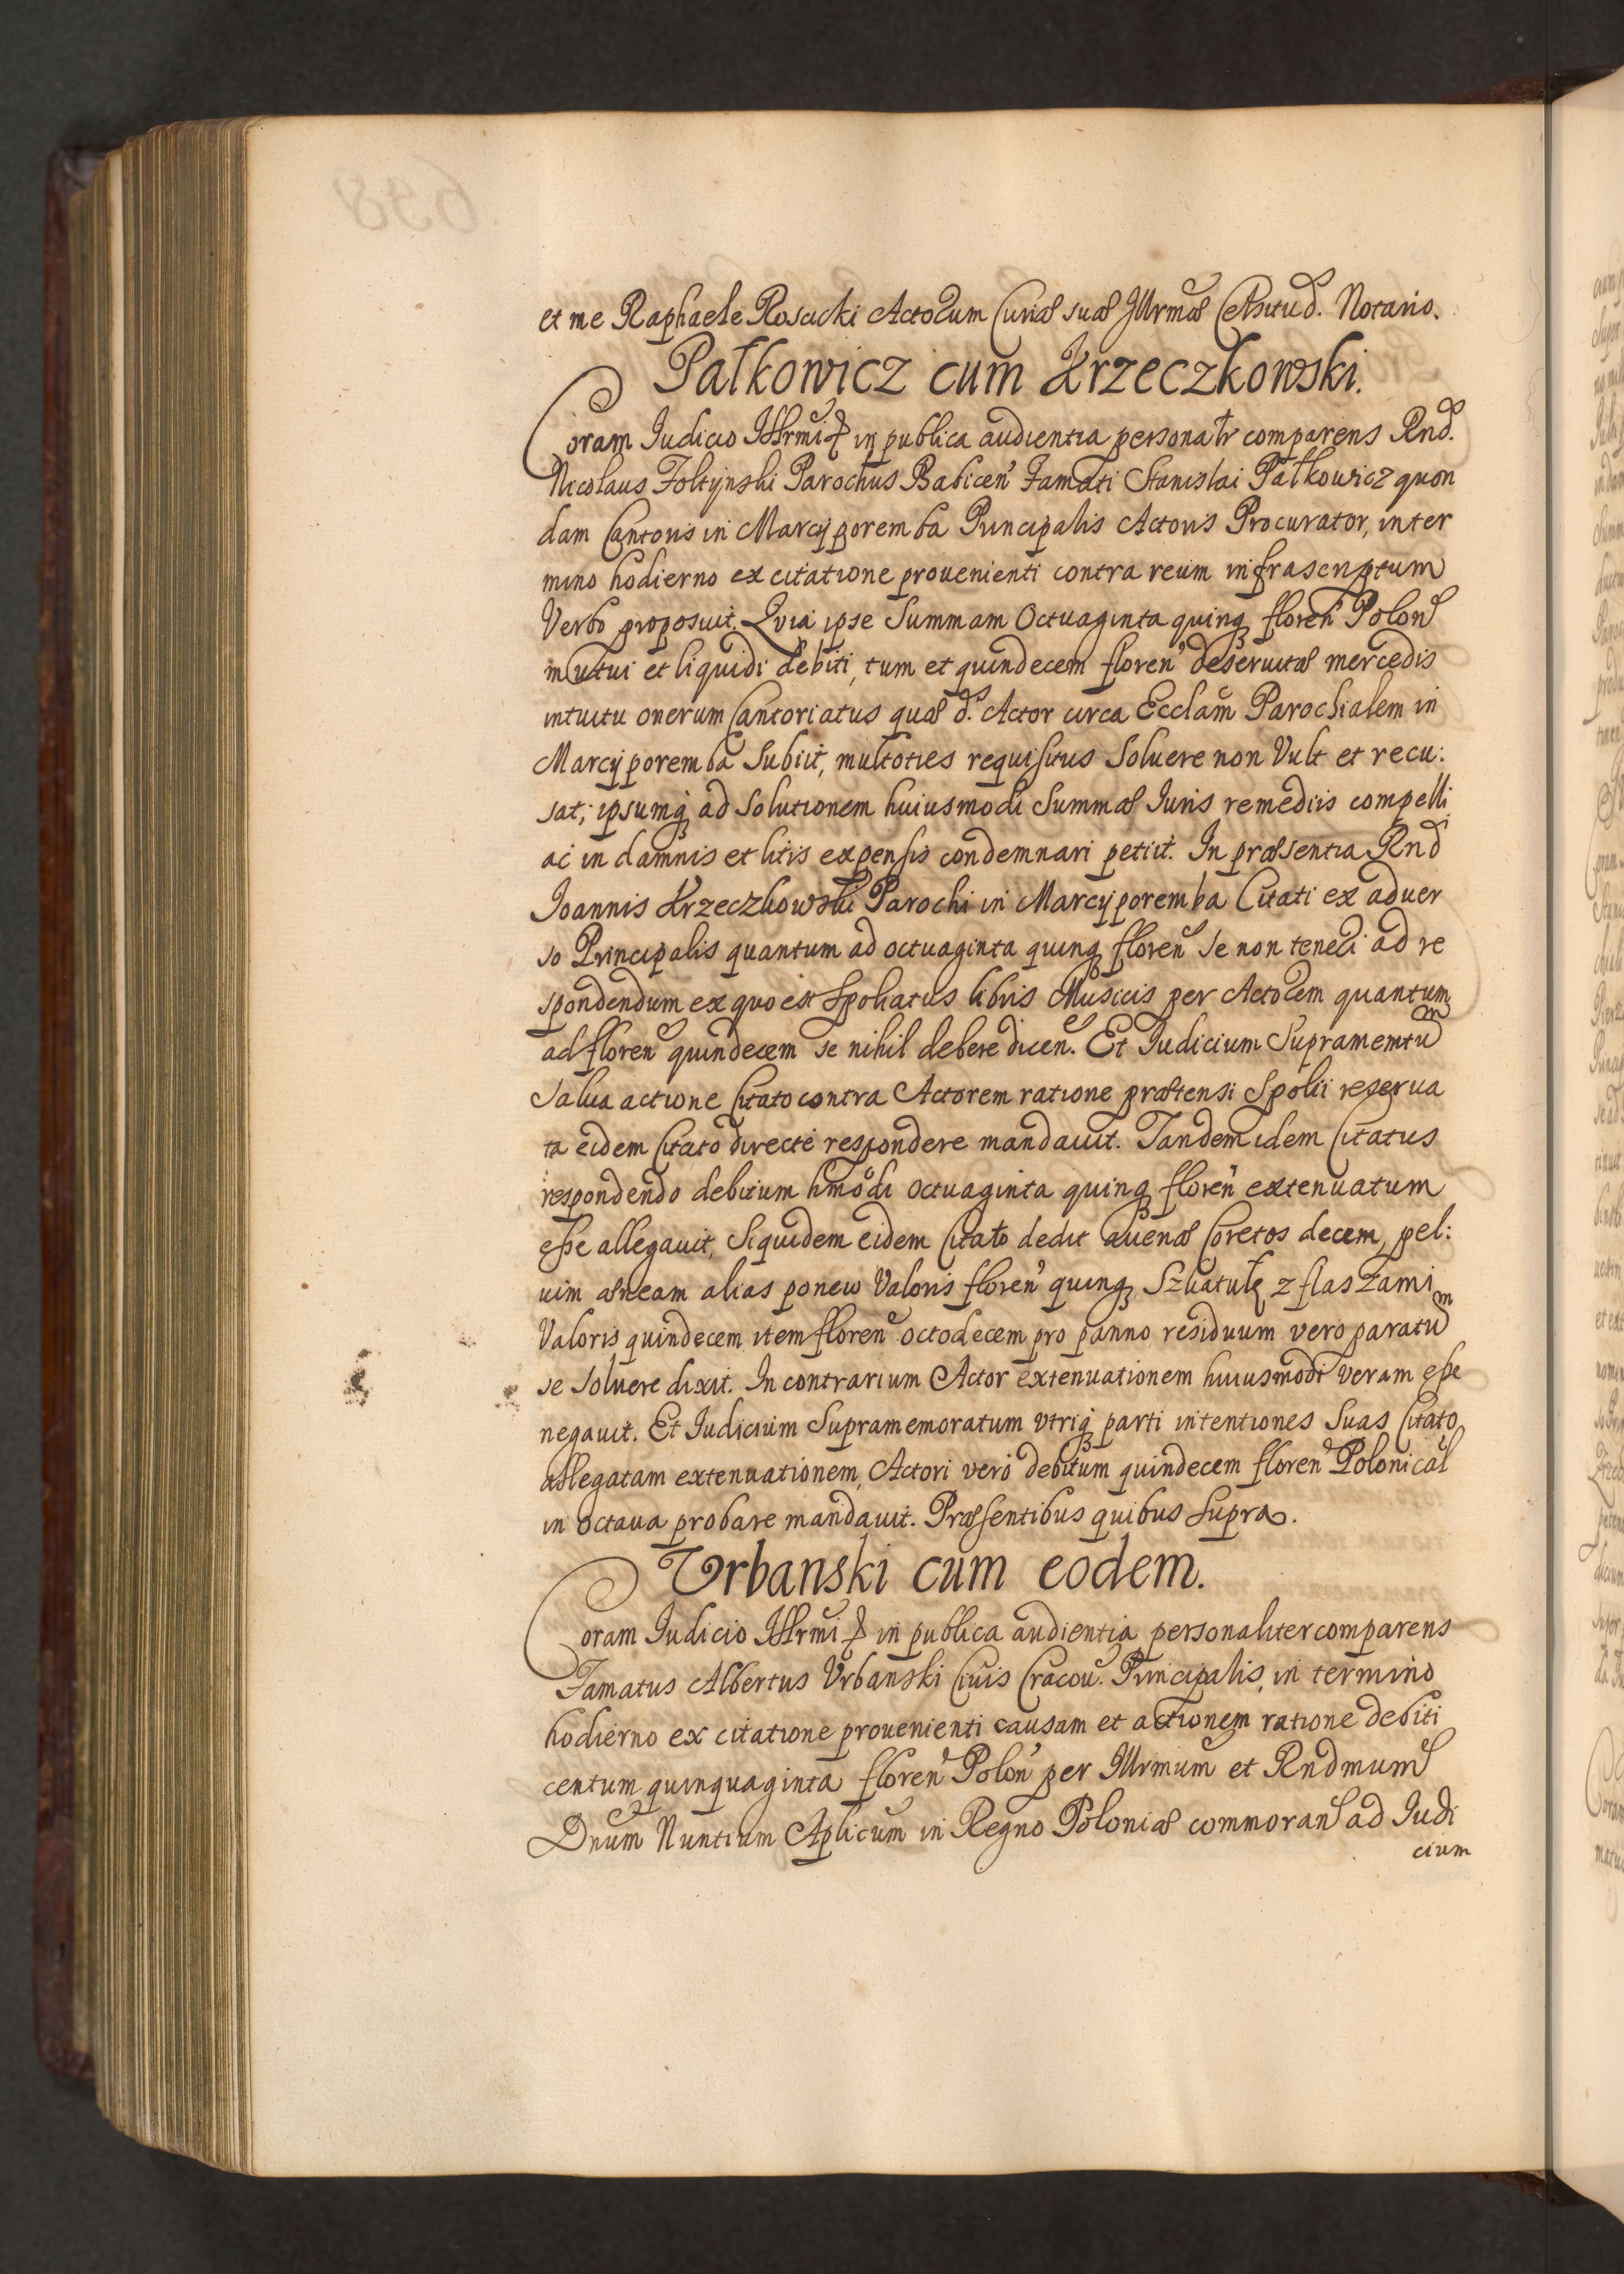 et me Raphaele Rosaicki Actorum Curiæ suæ Jllrmæ Celsitud. Notario.
Pałkowicz cum Krzeczkowski.
Coram Iudicio Jllrmi &c in publica audientia personalr comparens Rnd.
Nicolaus Foltynski Parochus Babicen Famati Stanislai Pałkowicz quon
dam Cantoris in Marcyporemba Principalis Actoris Procurator, in ter
mino hodierno ex citatione prouenienti contra reum infrascriptum
Verbo proposuit. Quia ipse Summam Octuaginta quinq floren Polon
mutui et liquidi debiti, tum et quindecem floren deseruitæ mercedis
intuitu onerum Cantoriatus quæ d. Actor circa Ecclam Parochialem in
Marcyporemba Subiit, multoties requisitus Soluere non Vult et recu:
sat; ipsumq ad Solutionem huiusmodi Summæ Iuris remediis compelli
ac in damnis et litis expensis condemnari petiit. In præsentia Rnd
Joannis Krzeczkowski Parochi in Marcyporemba Citati ex aduer
so Principalis quantum ad octuaginta quinq floren se non teneri ad re
spondendum ex quo est Spoliatus libris Musicis per Actorem quantum
ad floren quindecem se nihil debere dicen. Et Iudicium Supramemtum
Salua actione Citato contra Actorem ratione prætensi Spolii reserua
ta eidem Citato directe respondere mandauit. Tandem idem Citatus
respondendo debitum hmodi octuaginta quinq floren extenuatum
esse allegauit, Siquidem eidem Citato dedit auenæ Coretos decem, pel:
uim æneam alias ponew Valoris floren quinq, Szkatułę z flaszami
Valoris quindecem item floren octodecem pro panno residuum vero paratum
se Soluere dixit. In contrarium Actor extenuationem huiusmodi veram esse
negauit. Et Iudicium Supramemoratum vtriq parti intentiones Suas Citato
allegatam extenuationem, Actori vero debitum quindecem floren Polonical
in octaua probare mandauit. Præsentibus quibus Supra.
Vrbanski cum eodem.
Coram Iudicio Jllrmi &c in publica audientia personaliter comparens
Famatus Albertus Vrbanski Ciuis Cracou. Principalis, in termino
hodierno ex citatione prouenienti causam et actionem ratione debiti
centum quinquaginta floren Polon per Illrmum et Rndmum
Dnum Nuntium Aplicum in Regno Poloniæ commoran ad Iudi
cium